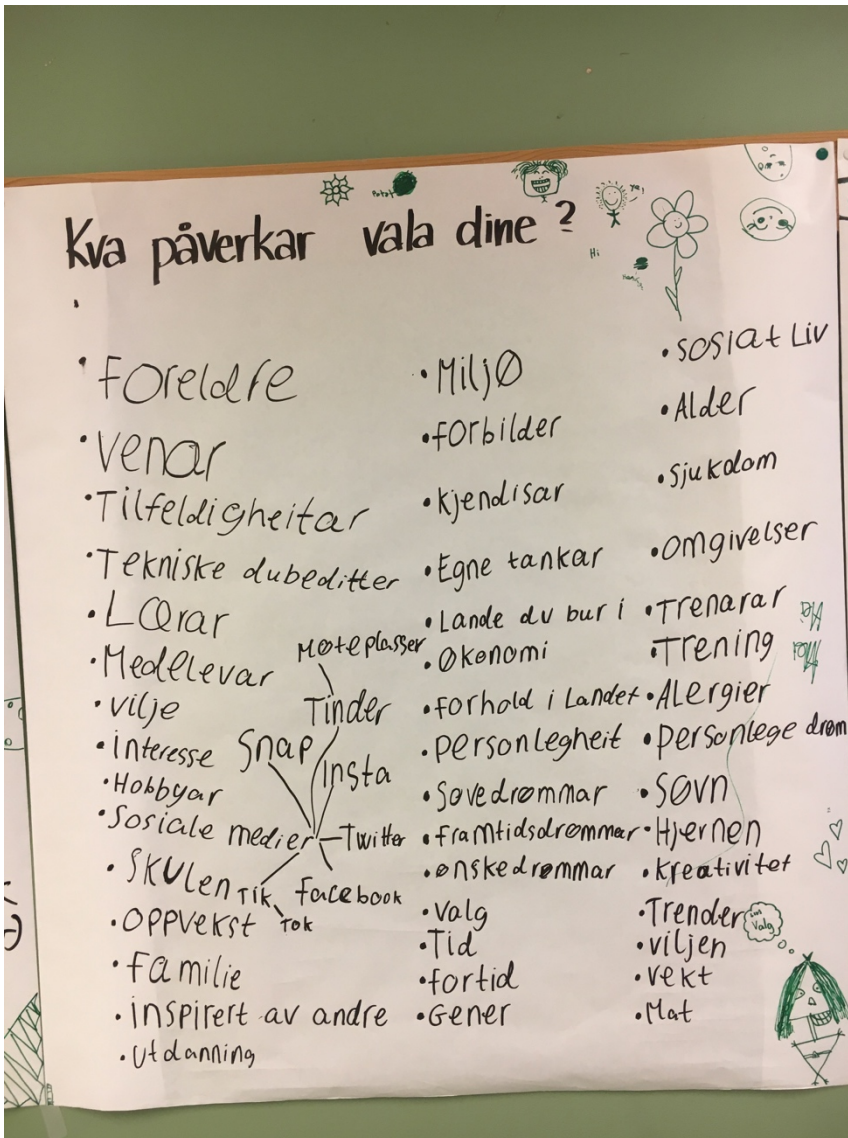 Kva påverkar vala dine?
Potet
ya!
Hi
• Foreldre
• Venar
• Tilfeldigheitar
• Tekniske dubeditter
• Lærar
• Medelevar
• vilje
• interesse
• Hobbyar
• Sosiale medier
Snap
Tinder
Møteplasser
Insta
Twitter
facebook
Tik
Tok
• SKULEN
• OPPVEKST
• familie
• inspirert av andre
• utdanning
• Miljø
• forbilder
• kjendisar
• Egne tankar
• Lande du bur i
• Økonomi
• forhold i Landet
• personlegheit
• Søvedrømmar
• framtidsdrømmar
• ønskedrømmar
• Valg
• Tid
• fortid
• Gener
• sosiat Liv
• Alder
• sjukdom
• omgivelser
• Trenarar
• Trening
• Alergier
• personlege drøm
• søvn
• Hjernen
• kreativitet
• Trender
• viljen
• vekt
• Mat
Hei
Valg